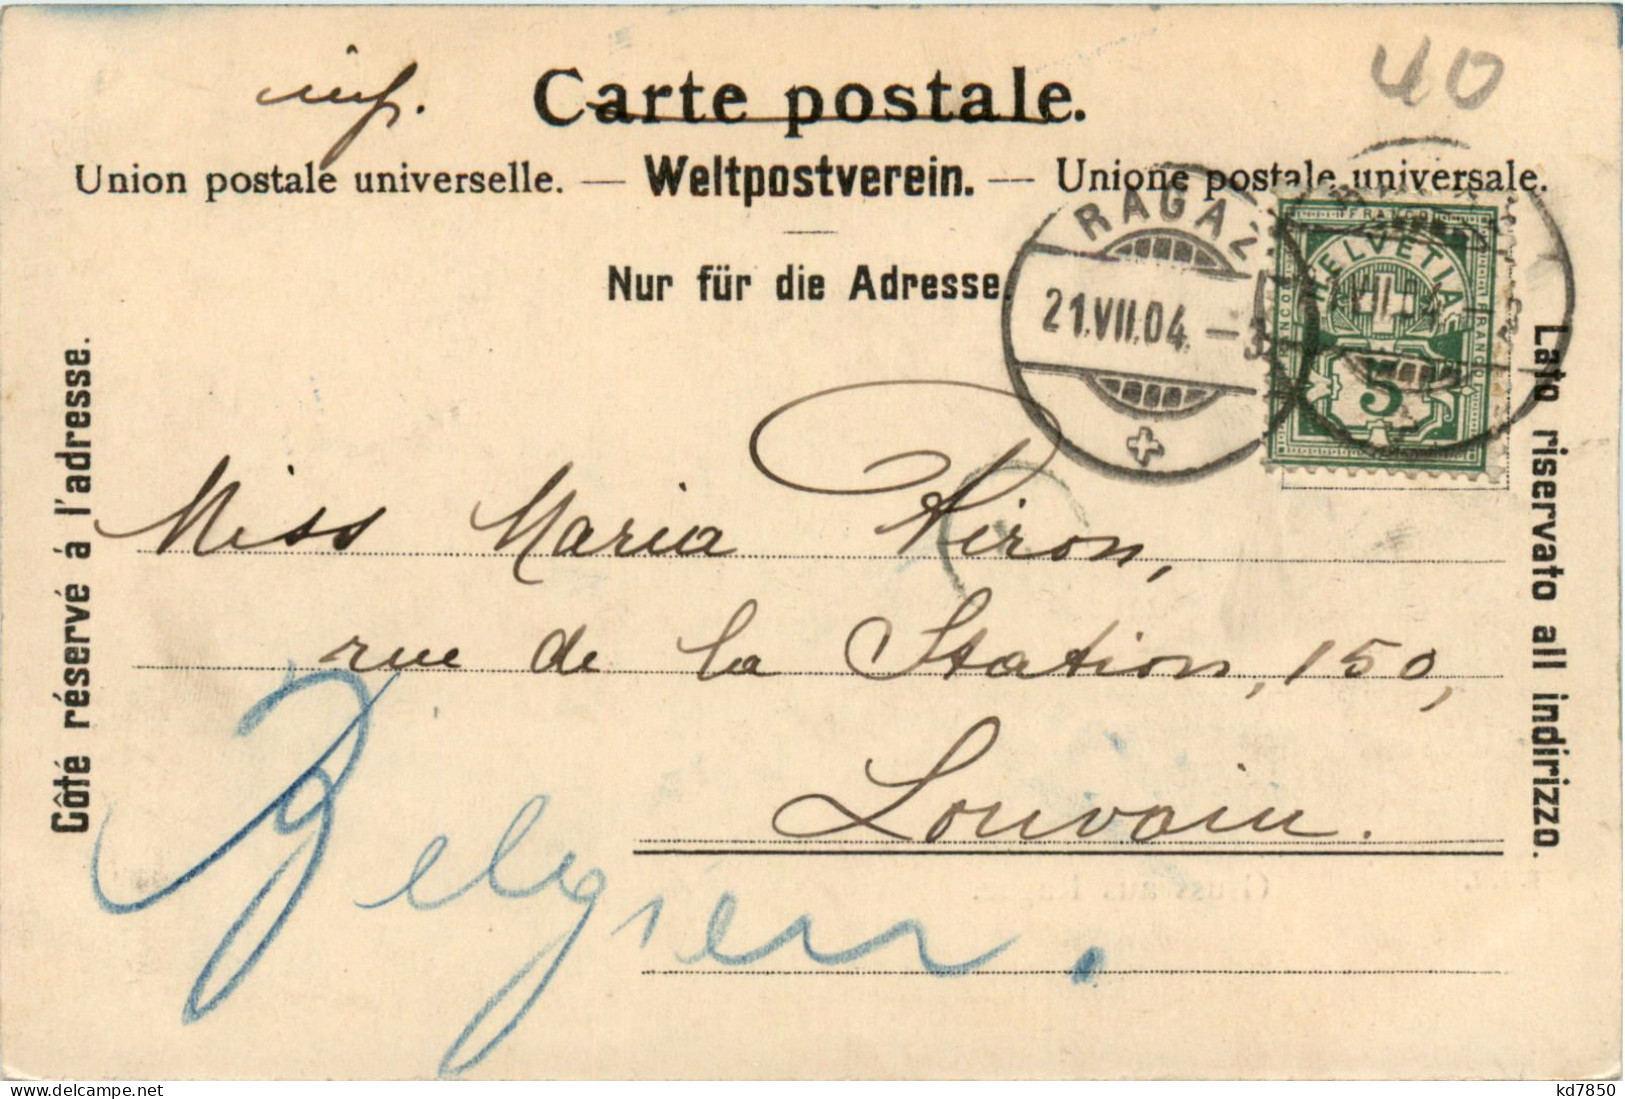 40
Carte postale.
Union postale universelle. — Weltpostverein. — Unione postale universale.
Nur für die Adresse.
RAGAZ
21.VII.04.–3
FRANCO
HELVETIA
5
Côté réservé á l'adresse.
Lato riservato all indirizzo.
Miss Maria Piron,
rue de la Station, 150,
Louvain.
Belgien.
delcampe.net
kd7850